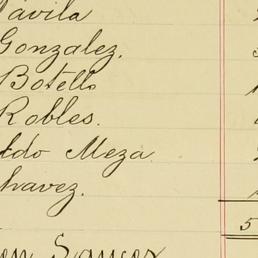 Davila
Gonzalez.
Botello
Robles.
ldo Meza
havez.
5